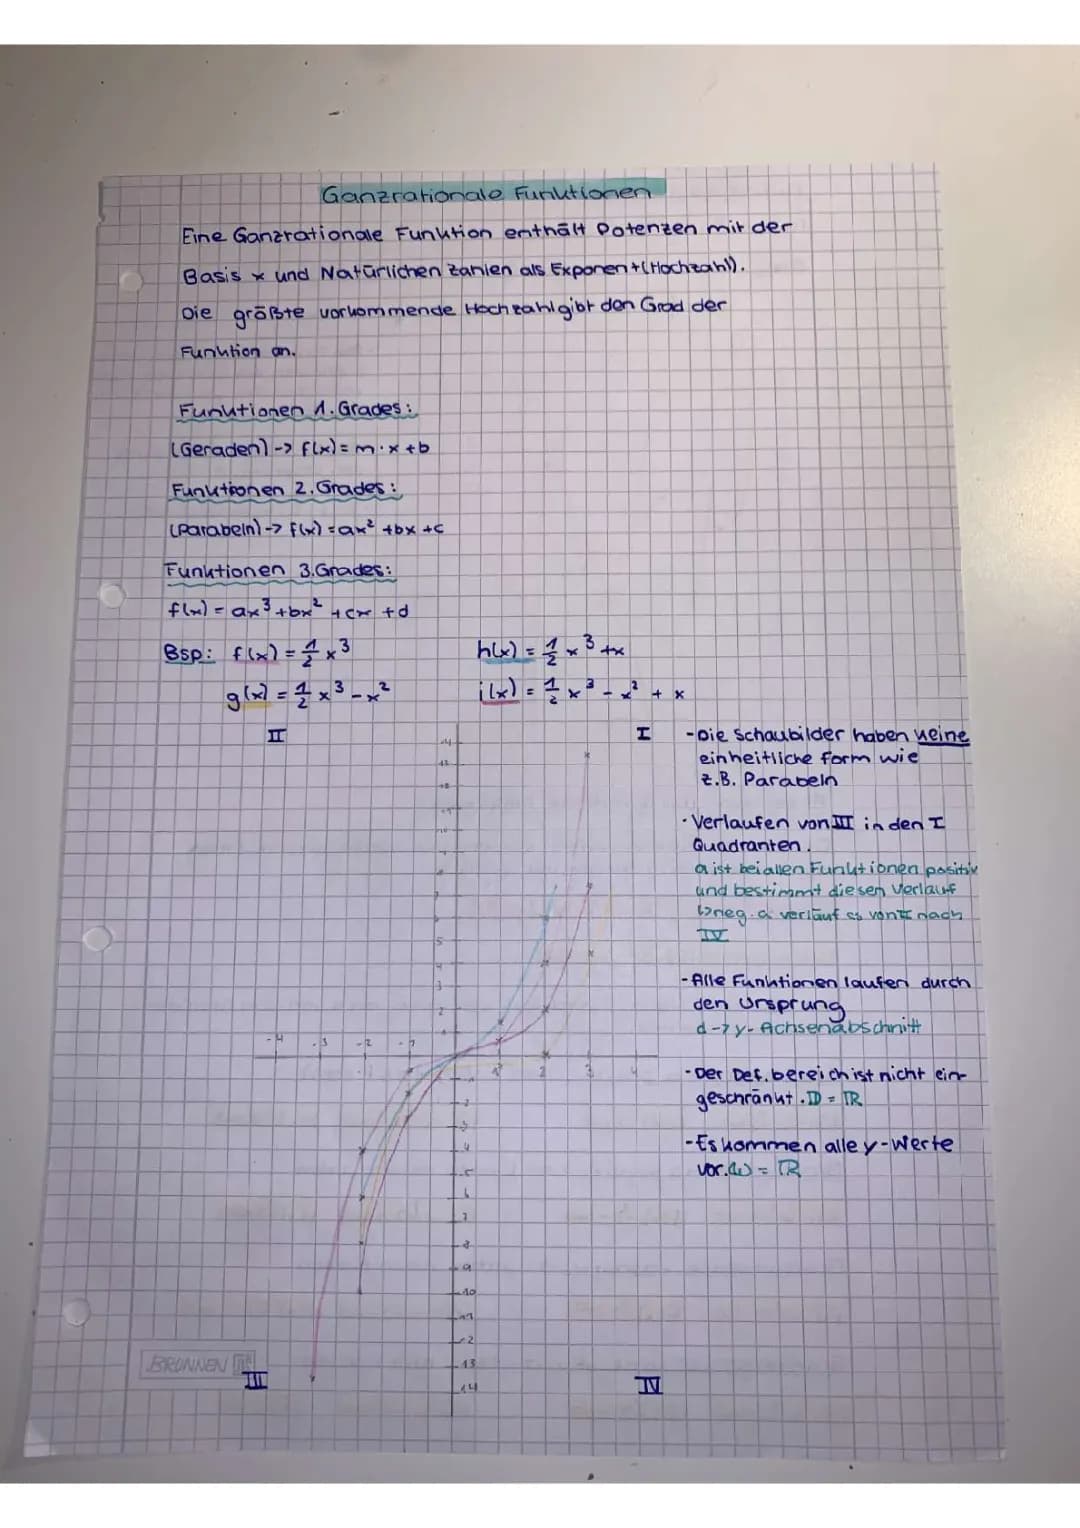 Ganzrationale Funktionen
Eine Ganzrationale Funktion enthält Potenzen mit der
Basis x und Natürlichen Zahlen als Exponent (Hochzahl).
Die größte vorkommende Hochzahl gibt den Grad der
Funktion an.
Funktionen 1. Grades:
(Geraden) -> f(x) = m·x +b
Funktionen 2. Grades:
(Parabeln) -> f(x) = ax² +bx +c
Funktionen 3. Grades:
f(x) = ax³ +bx² +cx +d
Bsp: f(x) = 1/2 x³ h(x) = 1/2 x³ +x
g(x) = 1/2 x³ - x² i(x) = 1/2 x³ - x² + x
II I
- Die Schaubilder haben keine
einheitliche Form wie
z.B. Parabeln
· Verlaufen von III in den I
Quadranten.
a ist bei allen Funktionen positiv
und bestimmt diesen Verlauf
↳ neg. a verläuf es von II nach
IV
- Alle Funktionen laufen durch
den Ursprung
d -> y-Achsenabschnitt
- Der Def.bereich ist nicht ein-
geschränkt. D = ℝ
- Es kommen alle y-Werte
vor. W = ℝ
-4 -3 -2 -1 1 2 3 4
BRUNNEN
III IV